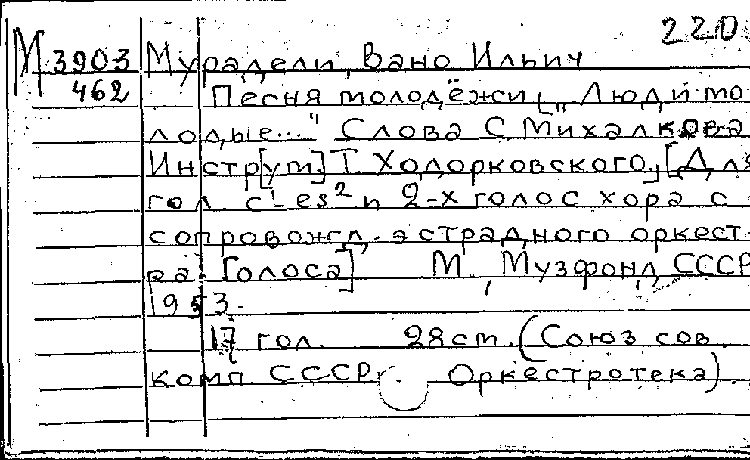 220
М 3903 Мурадели, Вано Ильич
462 Песня молодёжи („Люди мо-
лодые..." Слова С. Михалкова
Инстр[ум.] Т. Ходорковского,) [Для
гол. c¹-es² и 2-х голос хора с
сопровожд. эстрадного оркест-
ра. Голоса] М., Музфонд СССР
1953.
17 гол. 28 ст. (Союз сов.
комп. СССР. Оркестротека).